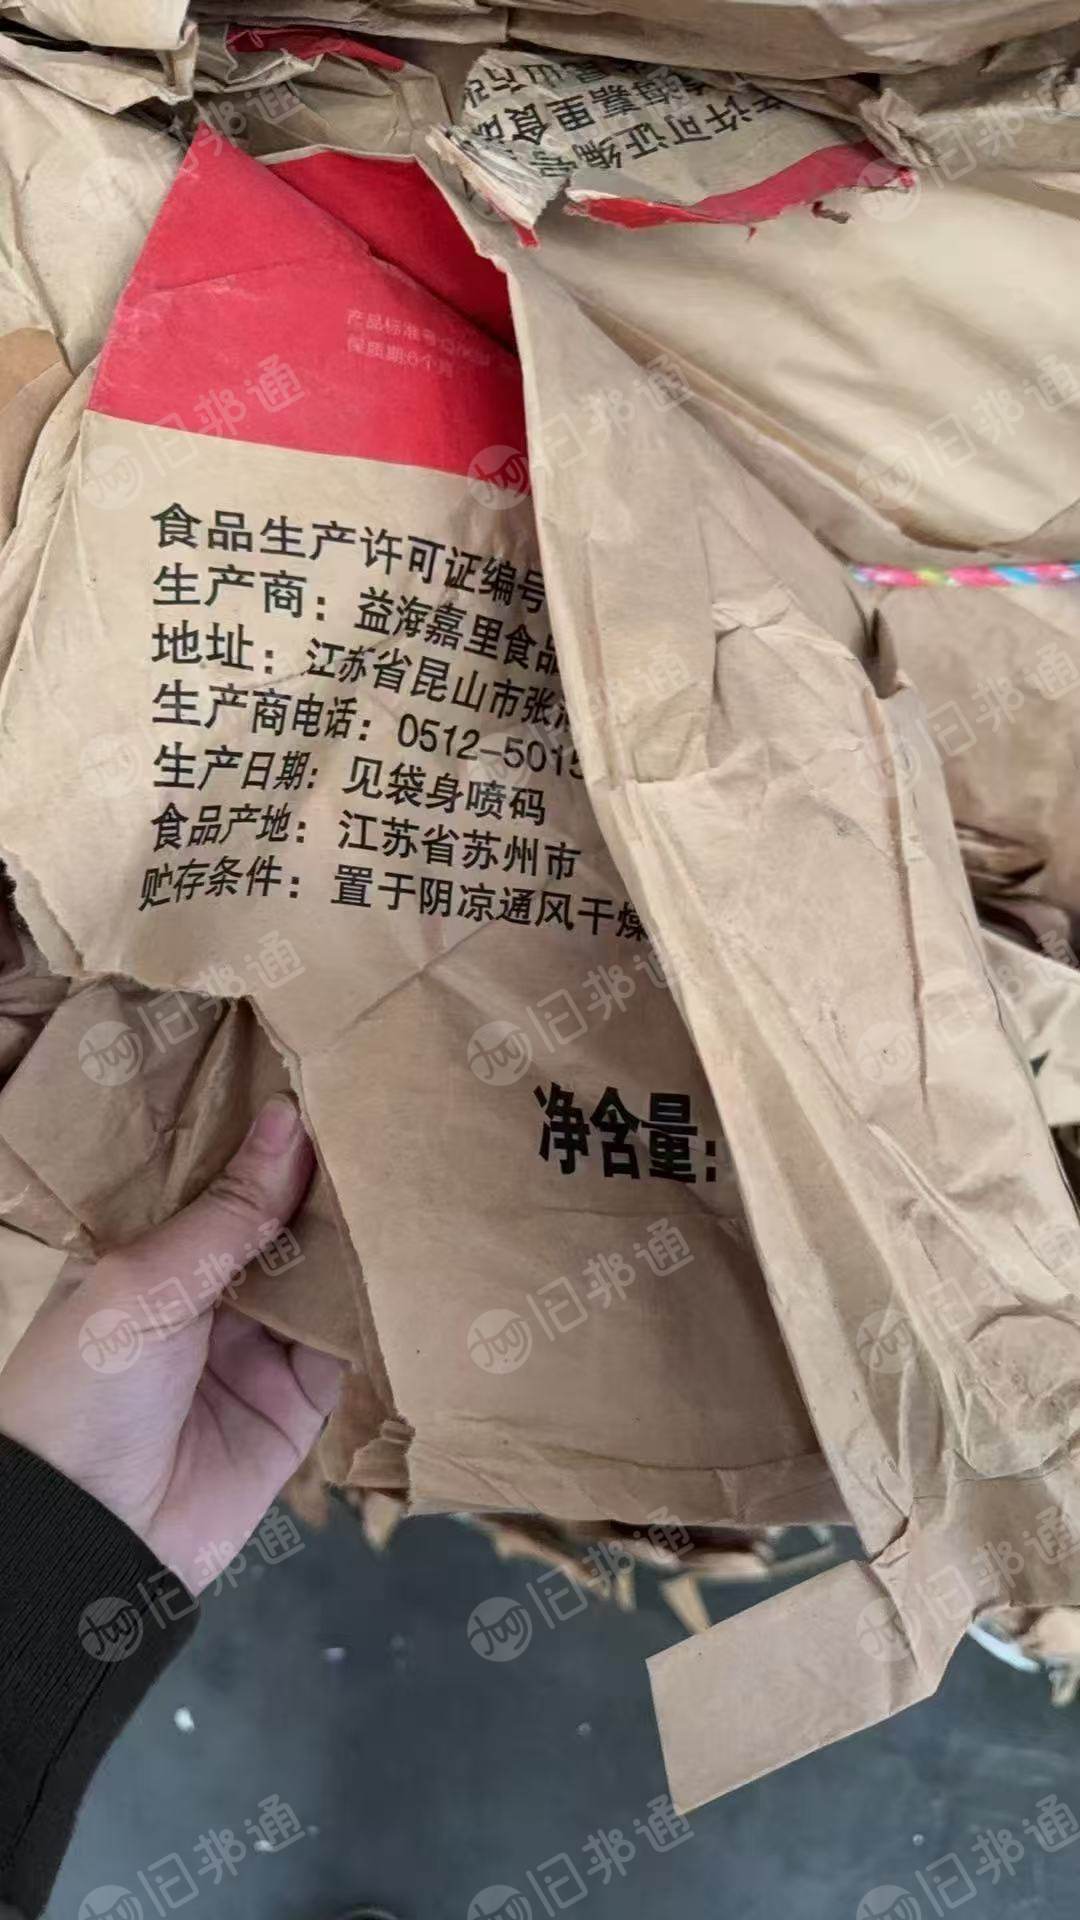 产许可证编号
海嘉里食品
昆山市张
产品标准号:Q/
保质期:6个月
食品生产许可证编号
生产商：益海嘉里食品
地址：江苏省昆山市张
生产商电话：0512-5015
生产日期：见袋身喷码
食品产地：江苏省苏州市
贮存条件：置于阴凉通风干燥
净含量：
旧邦通